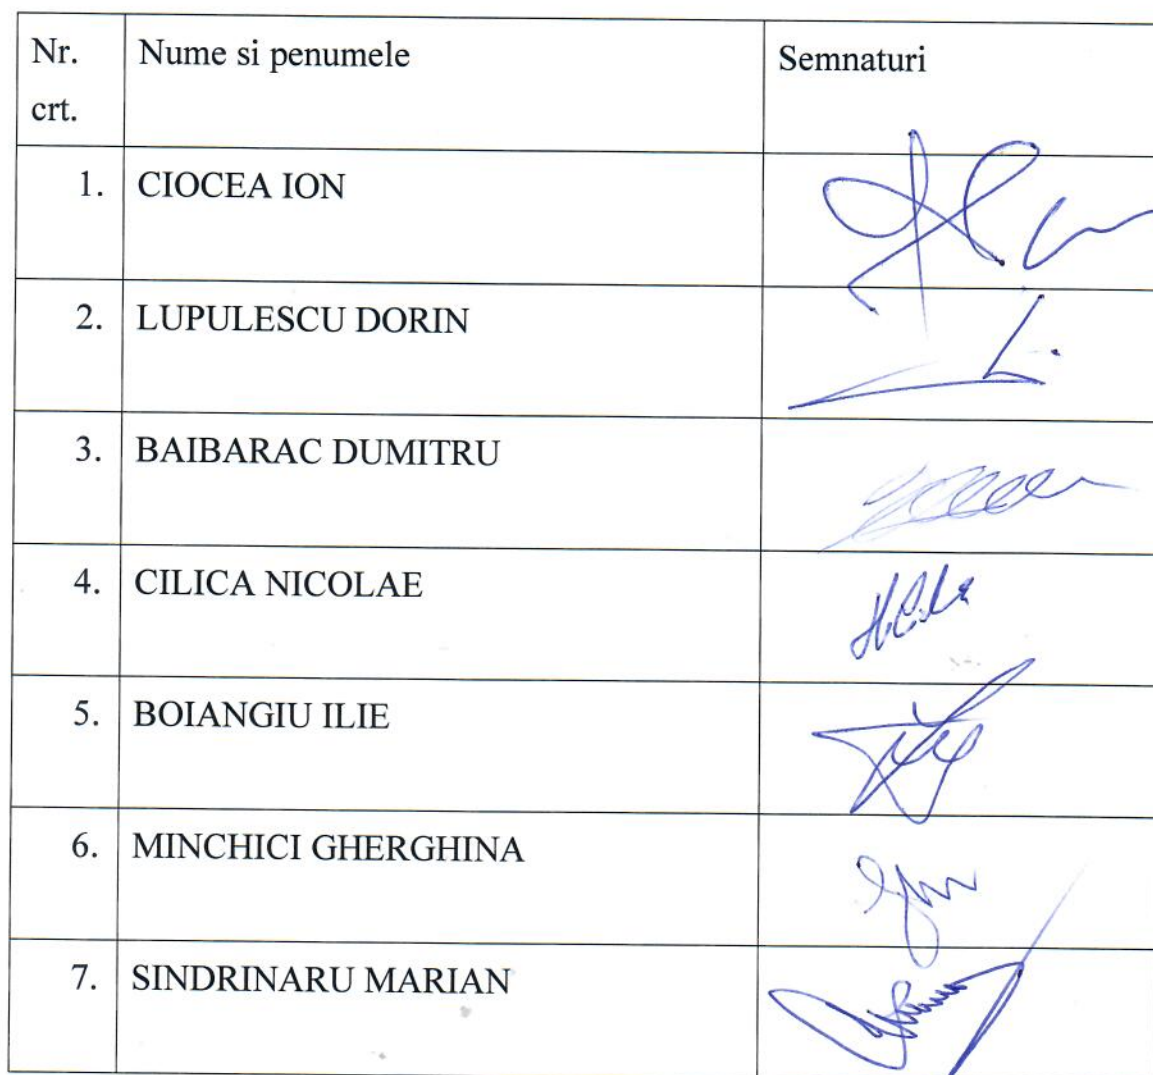 Nr. crt. Nume si penumele Semnaturi
1. CIOCEA ION
2. LUPULESCU DORIN
3. BAIBARAC DUMITRU
4. CILICA NICOLAE
5. BOIANGIU ILIE
6. MINCHICI GHERGHINA
7. SINDRINARU MARIAN